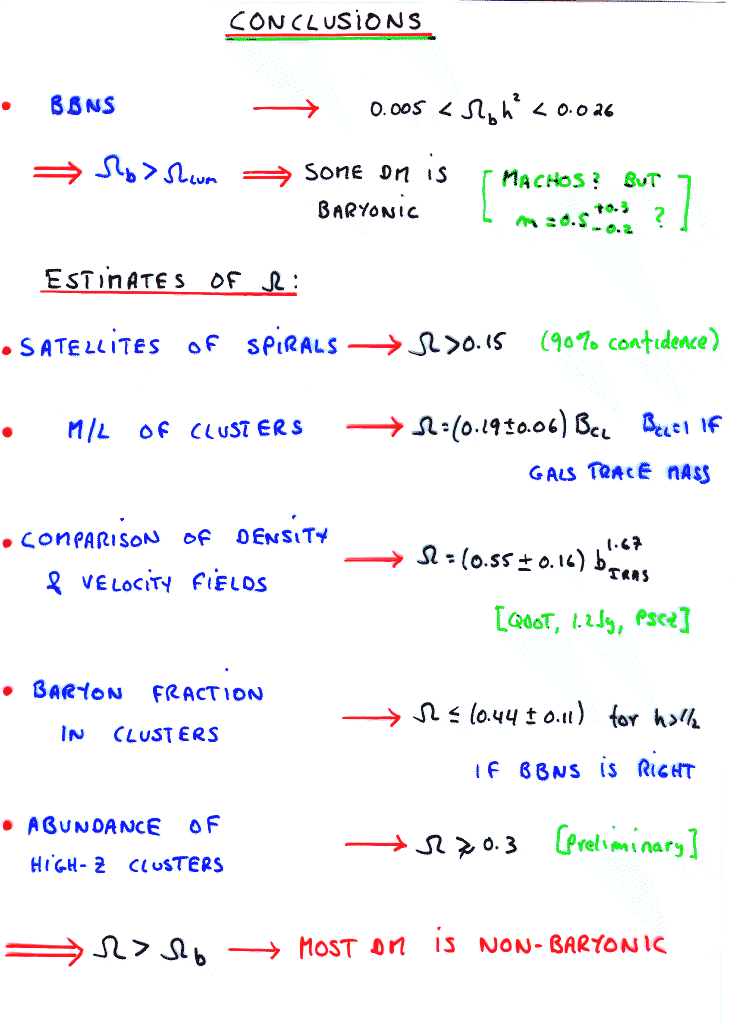 CONCLUSIONS
• BBNS → 0.005 < Ω_b h² < 0.026
⇒ Ω_b > Ω_LUM ⇒ SOME DM IS BARYONIC [MACHOS? BUT m = 0.5 +0.3 −0.2 ?]
ESTIMATES OF Ω:
• SATELLITES OF SPIRALS → Ω > 0.15 (90% confidence)
• M/L OF CLUSTERS → Ω = (0.19 ± 0.06) B_CL B_CL = 1 IF
GALS TRACE MASS
• COMPARISON OF DENSITY
& VELOCITY FIELDS → Ω = (0.55 ± 0.16) b_IRAS^1.67
[QDOT, 1.2Jy, PSCz]
• BARYON FRACTION
IN CLUSTERS → Ω ≤ (0.44 ± 0.11) for h > 1/2
IF BBNS IS RIGHT
• ABUNDANCE OF
HIGH-Z CLUSTERS → Ω ≳ 0.3 [Preliminary]
⇒ Ω > Ω_b → MOST DM IS NON-BARYONIC